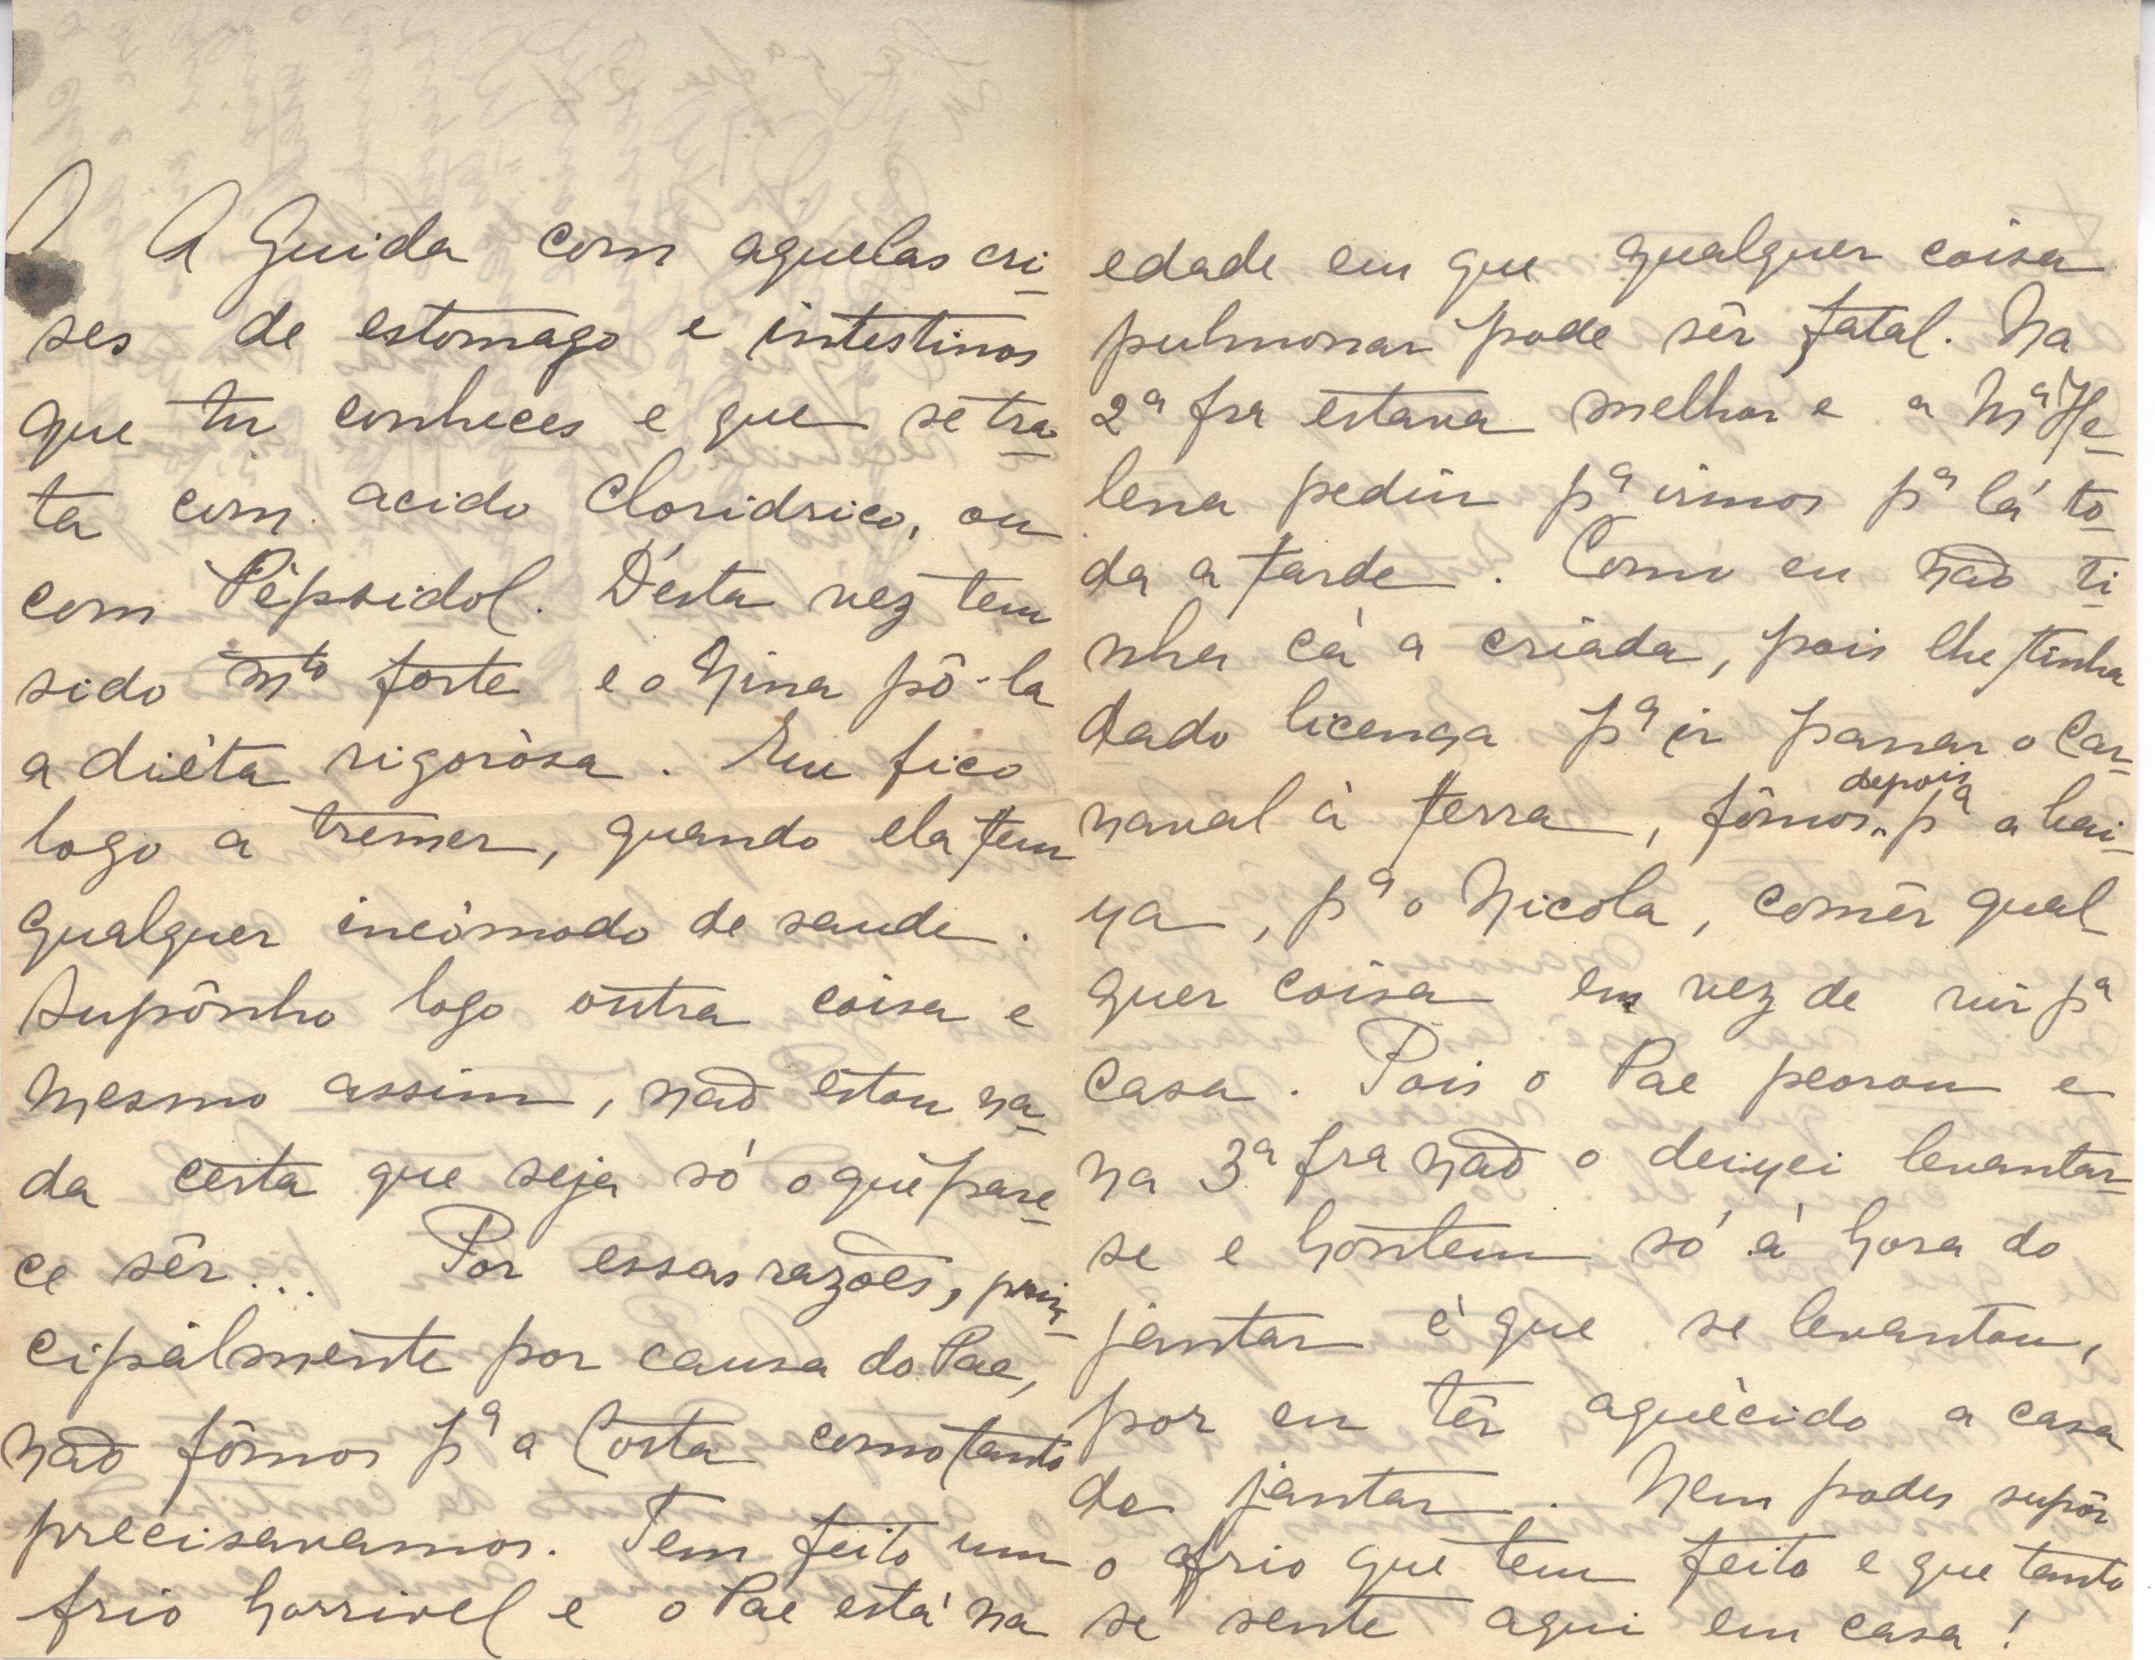 A Guida com aquelas cri-
ses de estomago e intestinos
que tu conheces e que se tra-
ta com acido cloridrico, ou
com Pèpsidol. D'esta vez tem
sido mto forte e o Nina pô-la
a diéta rigorósa. Eu fico
logo a tremer, quando ela tem
qualquer incómodo de saude.
Supônho logo outra coisa e
mesmo assim, não estou na-
da certa que seja só o que pare-
ce sêr... Por essas razões, prin-
cipálmente por causa do Pae,
não fômos pª a Costa como tanto
precisavamos. Tem feito um
frio horrivel e o Pae está na
edade em que qualquer coisa
pulmonar pode sêr fatal. Na
2ª fra estava melhor e a Mª He-
lena pediu pª irmos pª lá to-
da a tarde. Como eu não ti-
nha cá a criada, pois lhe tinha
dado licença pª ir passar o Car-
naval à terra, fômos depois pª a bai-
xa, pª o Nicola, comêr qual-
quer coisa em vez de vir pª
casa. Pois o Pae peorou e
na 3ª fra não o deixei levantar-
se e hontem só à hora do
jantar é que se levantou,
por eu têr aquècido a casa
de jantar. Nem podes supôr
o frio que tem feito e que tanto
se sente aqui em casa!